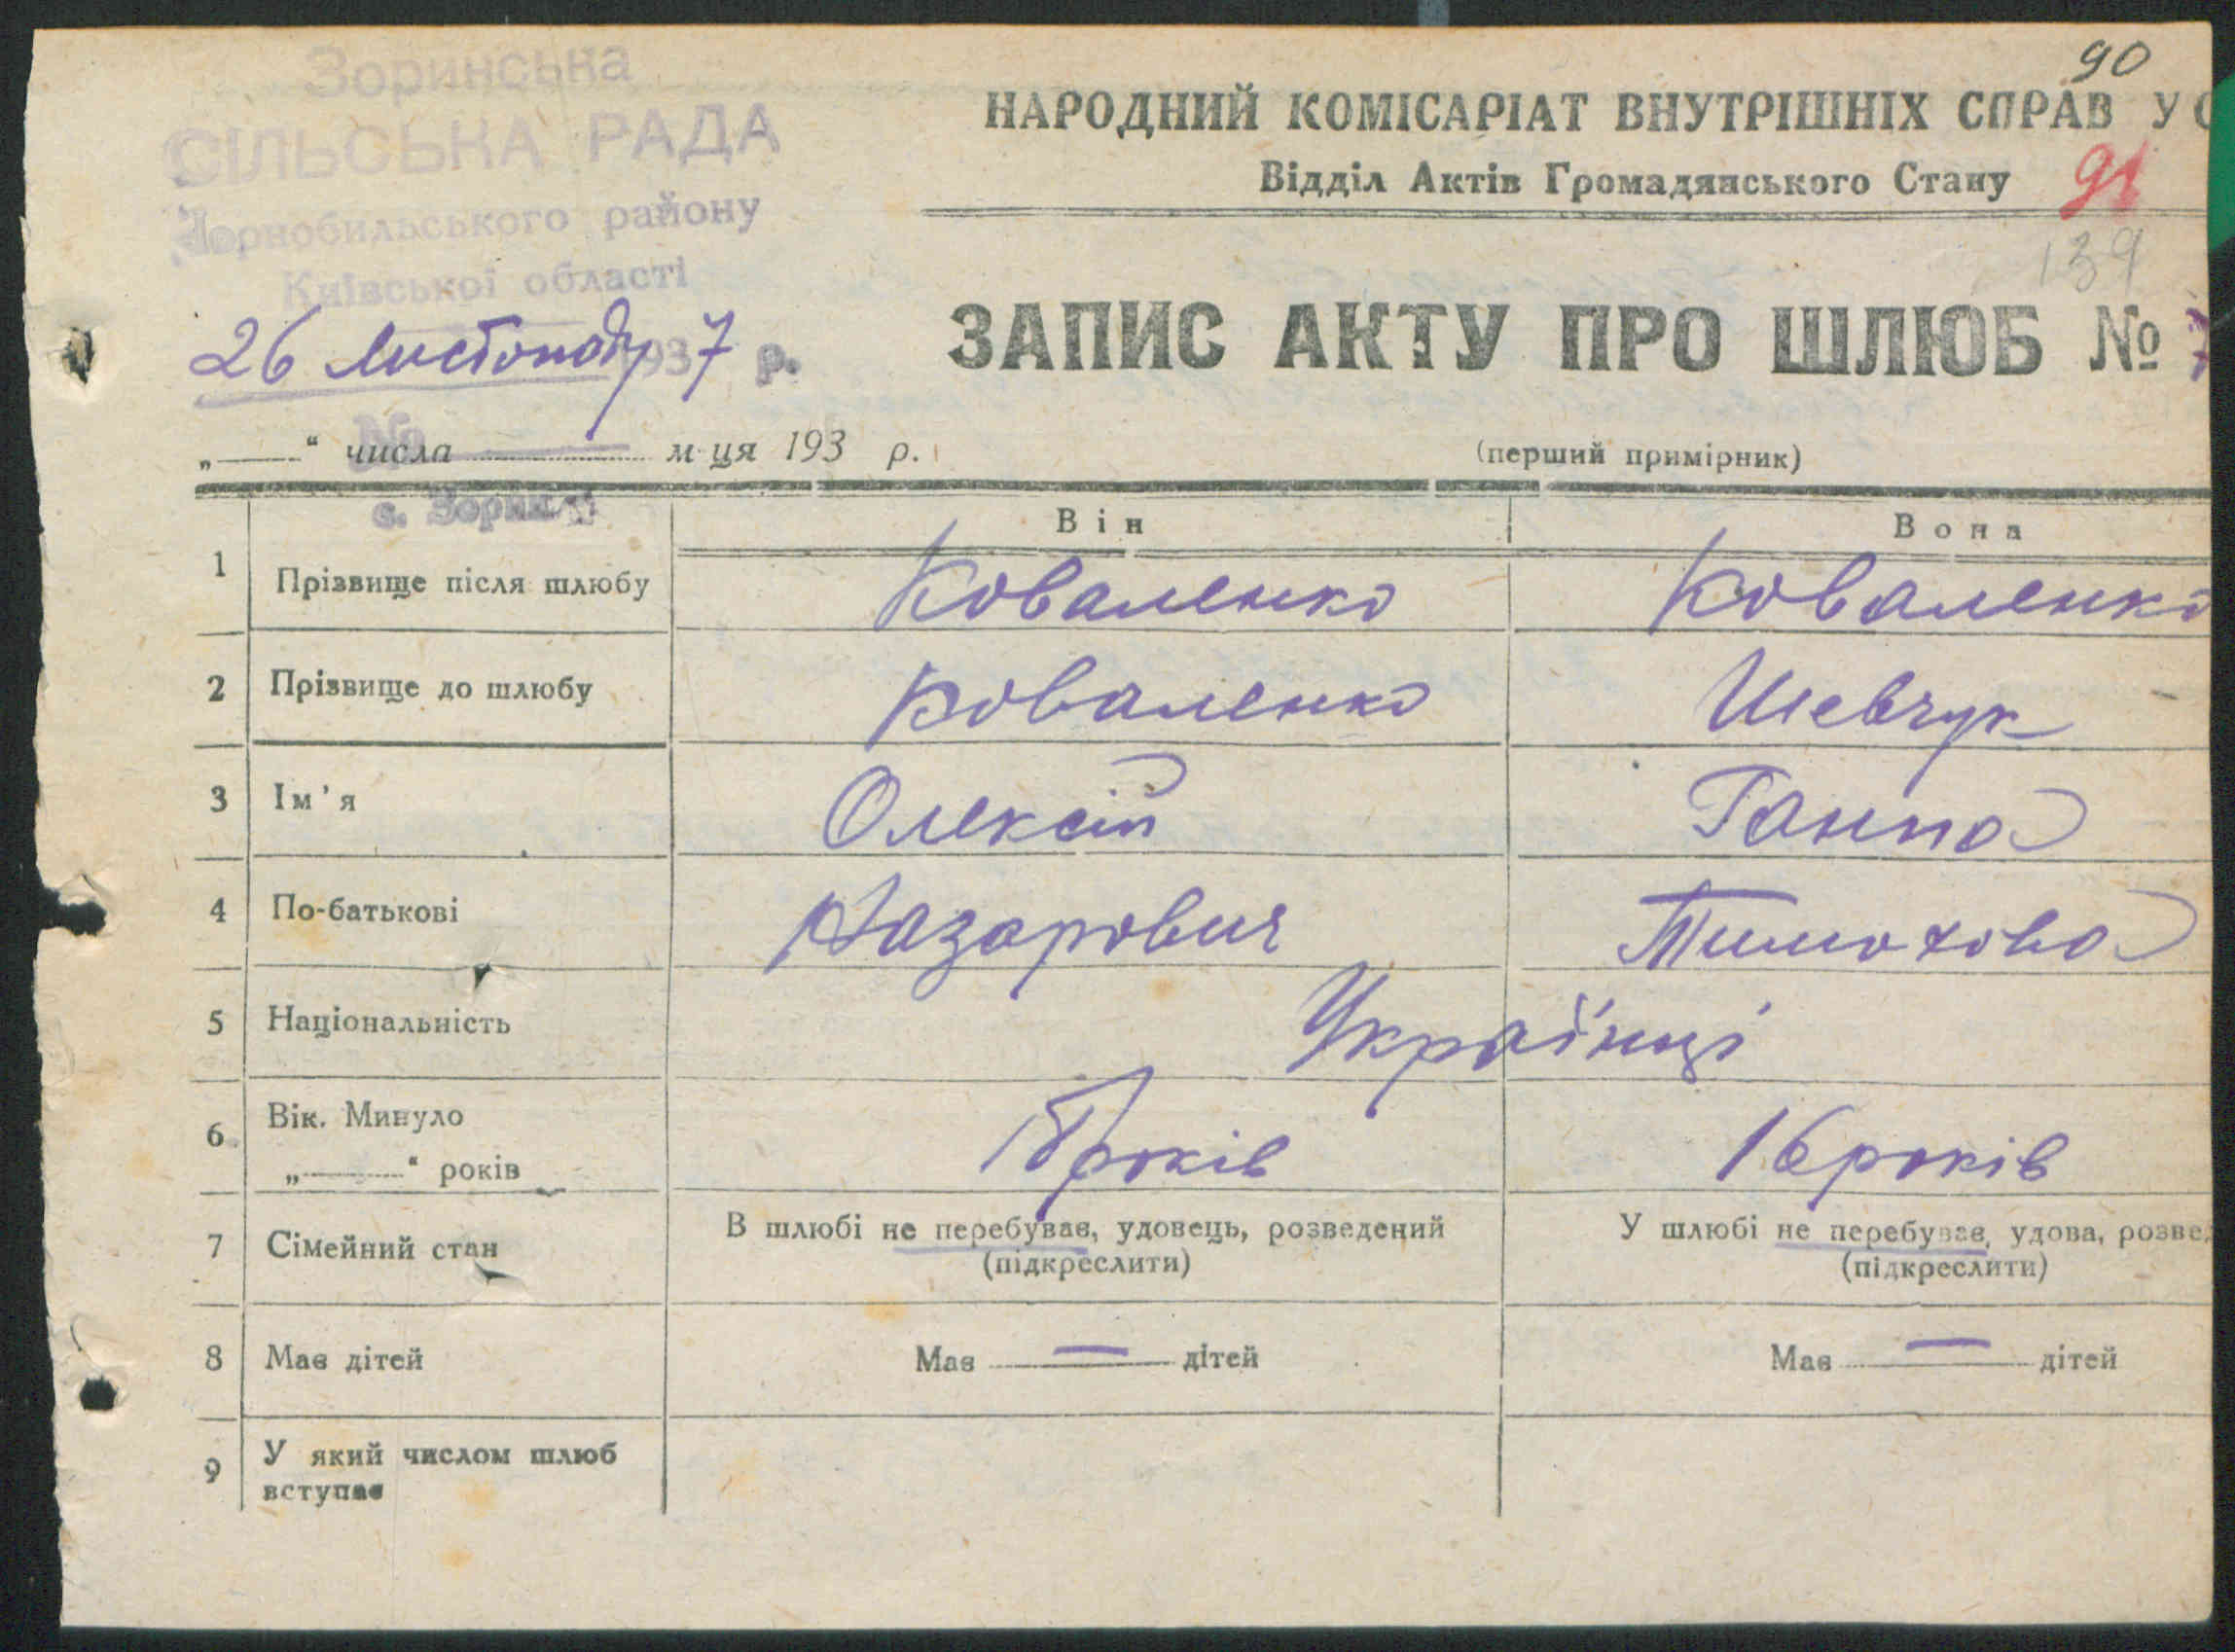 90
Зоринська
СІЛЬСЬКА РАДА
Чорнобильського району
Київської області
26 листопада 1937 р.
№
с. Зорин
НАРОДНИЙ КОМІСАРІАТ ВНУТРІШНІХ СПРАВ УС
Відділ Актів Громадянського Стану
91
139
ЗАПИС АКТУ ПРО ШЛЮБ № 7
„ “ числа м-ця 193 р.
(перший примірник)
Він Вона
1 Прізвище після шлюбу Коваленко Коваленко
2 Прізвище до шлюбу Коваленко Шевчук
3 Ім'я Олексій Ганна
4 По-батькові Назарович Тимохова
5 Національність Українці
6 Вік. Минуло
„ “ років 18 років 16 років
7 Сімейний стан В шлюбі не перебував, удовець, розведений У шлюбі не перебував, удова, розве
(підкреслити) (підкреслити)
8 Має дітей Має — дітей Має — дітей
9 У який числом шлюб
вступає